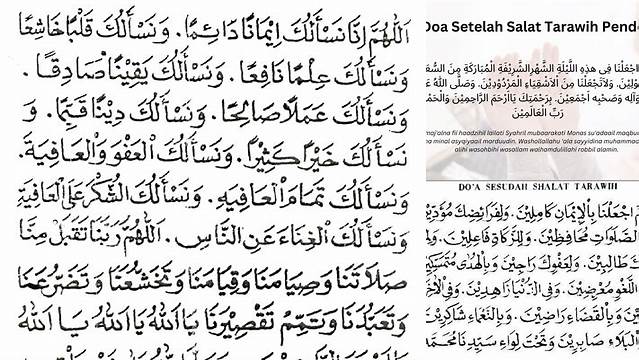 اَللّٰهُمَّ اِنَّا نَسْأَلُكَ اِيْمَانًا دَائِمًا. وَنَسْأَلُكَ قَلْبًا خَاشِعًا
وَنَسْأَلُكَ عِلْمًا نَافِعًا. وَنَسْأَلُكَ يَقِيْنًا صَادِقًا.
وَنَسْأَلُكَ عَمَلًا صَالِحًا. وَنَسْأَلُكَ دِيْنًا قَيِّمًا. وَ
نَسْأَلُكَ خَيْرًا كَثِيْرًا. وَنَسْأَلُكَ الْعَفْوَ وَالْعَافِيَةَ.
وَنَسْأَلُكَ تَمَامَ الْعَافِيَةِ. وَنَسْأَلُكَ الشُّكْرَ عَلَى الْعَافِيَةِ
وَنَسْأَلُكَ الْغِنَاءَ عَنِ النَّاسِ. اَللّٰهُمَّ رَبَّنَا تَقَبَّلْ مِنَّا
صَلَاتَنَا وَصِيَامَنَا وَقِيَامَنَا وَتَخَشُّعَنَا وَتَضَرُّعَنَا
وَتَعَبُّدَنَا وَتَمِّمْ تَقْصِيْرَنَا يَا اَللهُ يَا اَللهُ يَا اَللهُ
Doa Setelah Salat Tarawih Pend
اجْعَلْنَا فِى هٰذِهِ اللَّيْلَةِ الشَّهْرِ الشَّرِيْفَةِ الْمُبَارَكَةِ مِنَ السُّعَ
وَلَاتَجْعَلْنَا مِنَ الْأَشْقِيَاءِ الْمَرْدُوْدِيْنَ. وَصَلَّى اللهُ عَ
آلِهِ وَصَحْبِهِ أَجْمَعِيْنَ. بِرَحْمَتِكَ يَاأَرْحَمَ الرَّاحِمِيْنَ وَالْحَمْ
رَبِّ الْعَالَمِيْنَ
maj'alna fii haadzihil lailati Syahril mubaarakati Monas su'adaail maqbu
na minal asyqiyaail marduudin. Washollallahu 'ala sayyidina muhammad
alihi wasohbihi wasallam walhamdulillahi robbil alamin.
DO'A SESUDAH SHALAT TARAWIH
اجْعَلْنَا بِالْاِيْمَانِ كَامِلِيْنَ. وَلِفَرَائِضِكَ مُؤَدِّيْنَ
الصَّلَوَاتِ مُحَافِظِيْنَ. وَلِلزَّكَاةِ فَاعِلِيْنَ.
طَالِبِيْنَ. وَلِعَفْوِكَ رَاجِيْنَ وَبِالْهُدٰى مُتَمَسِّكِيْنَ
اللَّغْوِ مُعْرِضِيْنَ. وَفِى الدُّنْيَا زَاهِدِيْنَ.
وَبِالْقَضَاءِ رَاضِيْنَ. وَبِالنَّعْمَاءِ شَاكِرِيْنَ
الْبَلَاءِ صَابِرِيْنَ وَتَحْتَ لِوَاءِ سَيِّدِنَا مُحَمَّدٍ